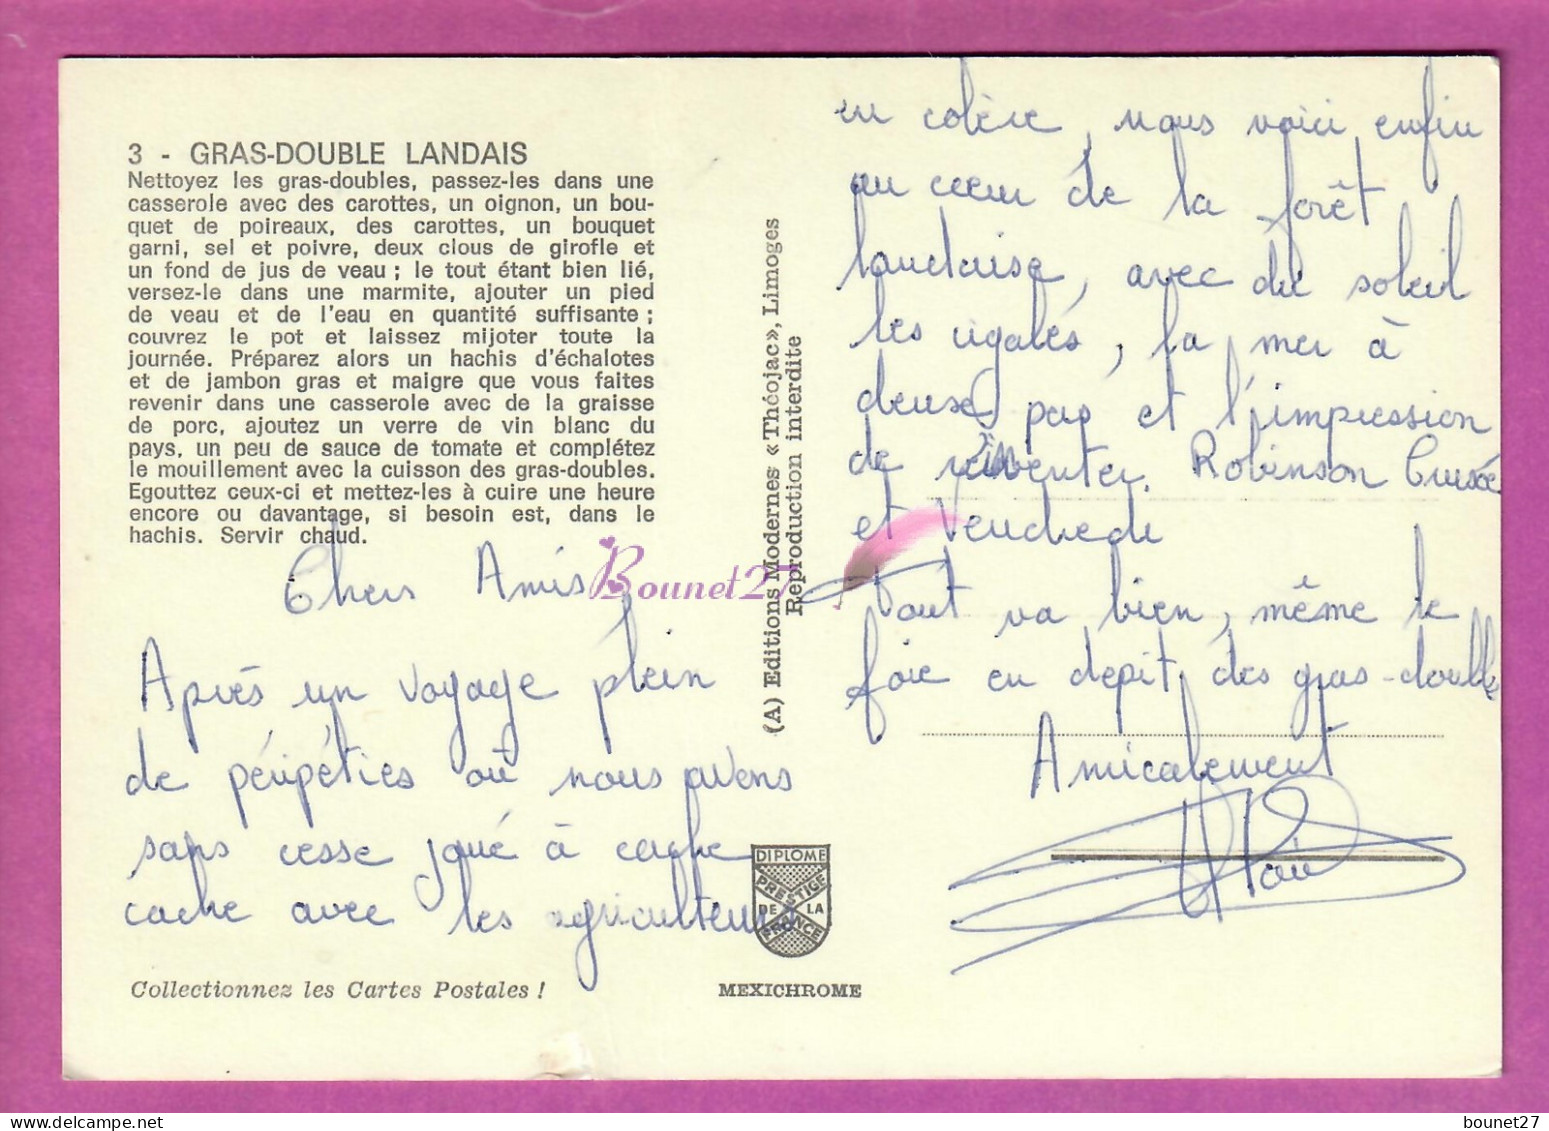 3 - GRAS-DOUBLE LANDAIS
Nettoyez les gras-doubles, passez-les dans une
casserole avec des carottes, un oignon, un bou-
quet de poireaux, des carottes, un bouquet
garni, sel et poivre, deux clous de girofle et
un fond de jus de veau ; le tout étant bien lié,
versez-le dans une marmite, ajouter un pied
de veau et de l'eau en quantité suffisante ;
couvrez le pot et laissez mijoter toute la
journée. Préparez alors un hachis d'échalotes
et de jambon gras et maigre que vous faites
revenir dans une casserole avec de la graisse
de porc, ajoutez un verre de vin blanc du
pays, un peu de sauce de tomate et complétez
le mouillement avec la cuisson des gras-doubles.
Egouttez ceux-ci et mettez-les à cuire une heure
encore ou davantage, si besoin est, dans le
hachis. Servir chaud.
Chers Amis,
Après un voyage plein
de péripéties où nous avons
sans cesse joué à cache
cache avec les agriculteurs
Collectionnez les Cartes Postales !
(A) Editions Modernes « Théojac », Limoges
Reproduction interdite
Bounet27
DIPLOME
PRESTIGE
DE LA
FRANCE
MEXICHROME
en colère, nous voici enfin
au coeur de la forêt
landaise, avec du soleil
les cigales, la mer à
deux pas et l'impression
de réinventer Robinson Crusoé
et Vendredi
Tout va bien, même le
foie en depit des gras-doubles
Amicalement
bounet27